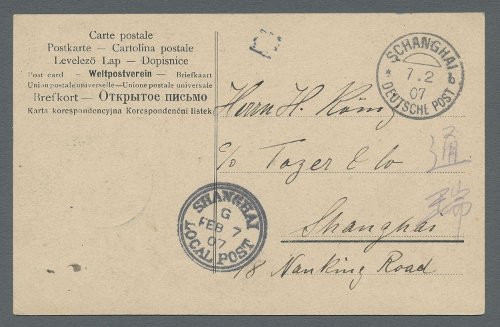 Carte postale
Postkarte — Cartolina postale
Levelező Lap — Dopisnice
Post card — Weltpostverein — Briefkaart
Union postale universelle — Unione postale universale
Brefkort — Открытое письмо
Karta korespondencyjna Korespondenční lístek
SCHANGHAI
7.2
07
* DEUTSCHE POST b
Herrn H. König
c/o Tozer & Co
通瑞
Shanghai
18 Nanking Road
SHANGHAI
G
FEB 7
07
LOCAL POST